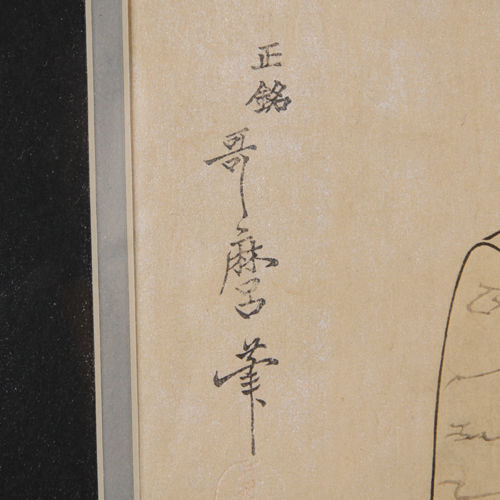 正銘
哥麿筆